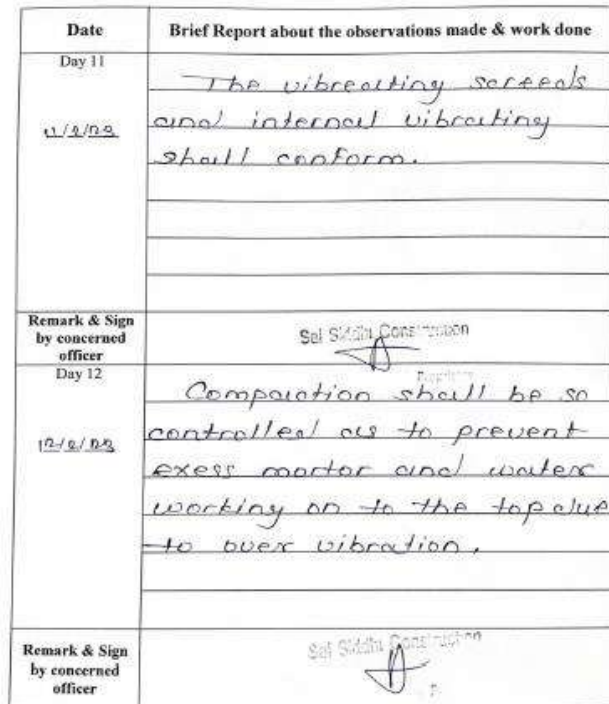 Date
Brief Report about the observations made & work done
Day 11
11/2/23
The vibreating screeds
and internal vibrating
shall conform.
Remark & Sign
by concerned
officer
Sai Siddhi Construction
Day 12
12/2/23
Compaiction shall be so
controlled as to prevent
exess mortor and water
working on to the top due
to over vibration.
Remark & Sign
by concerned
officer
Sai Siddhi Construction